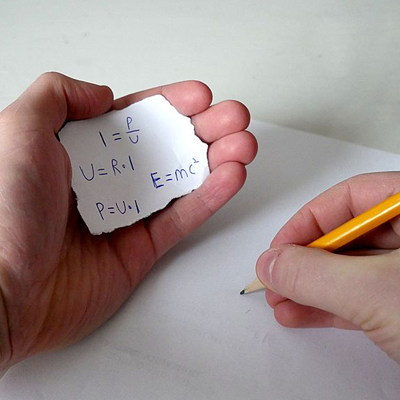 I = P/U
U = R·I
E = mc²
P = U·I